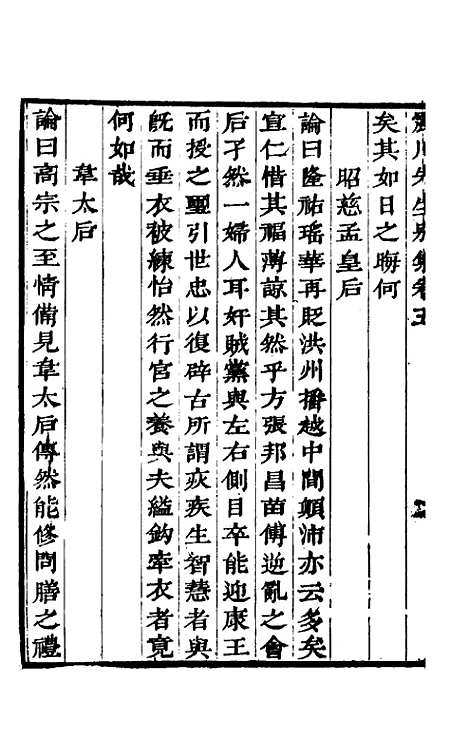 震川先生別集卷五
矣其如日之晦何
昭慈孟皇后
論曰隆祐瑤華再貶洪州播越中間顛沛亦云多矣
宣仁惜其福薄諒其然乎方張邦昌苗傅逆亂之會
后孑然一婦人耳奸賊黨與左右側目卒能迎康王
而授之璽引世忠以復辟古所謂疢疾生智慧者與
旣而垂衣被練怡然行宮之養與夫縊鈎牽衣者竟
何如哉
韋太后
論曰高宗之至情備見韋太后傳然能修問膳之禮